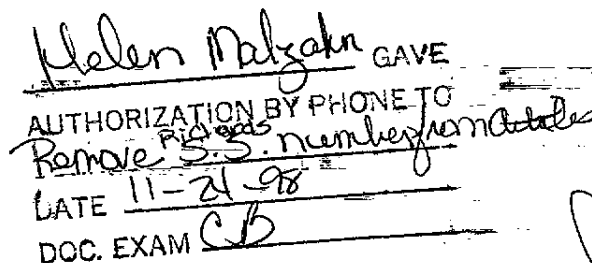 Helen Malzahn GAVE
AUTHORIZATION BY PHONE TO
Richards
Remove S.S. number from articles
DATE 11-21-98
DOC. EXAM CB